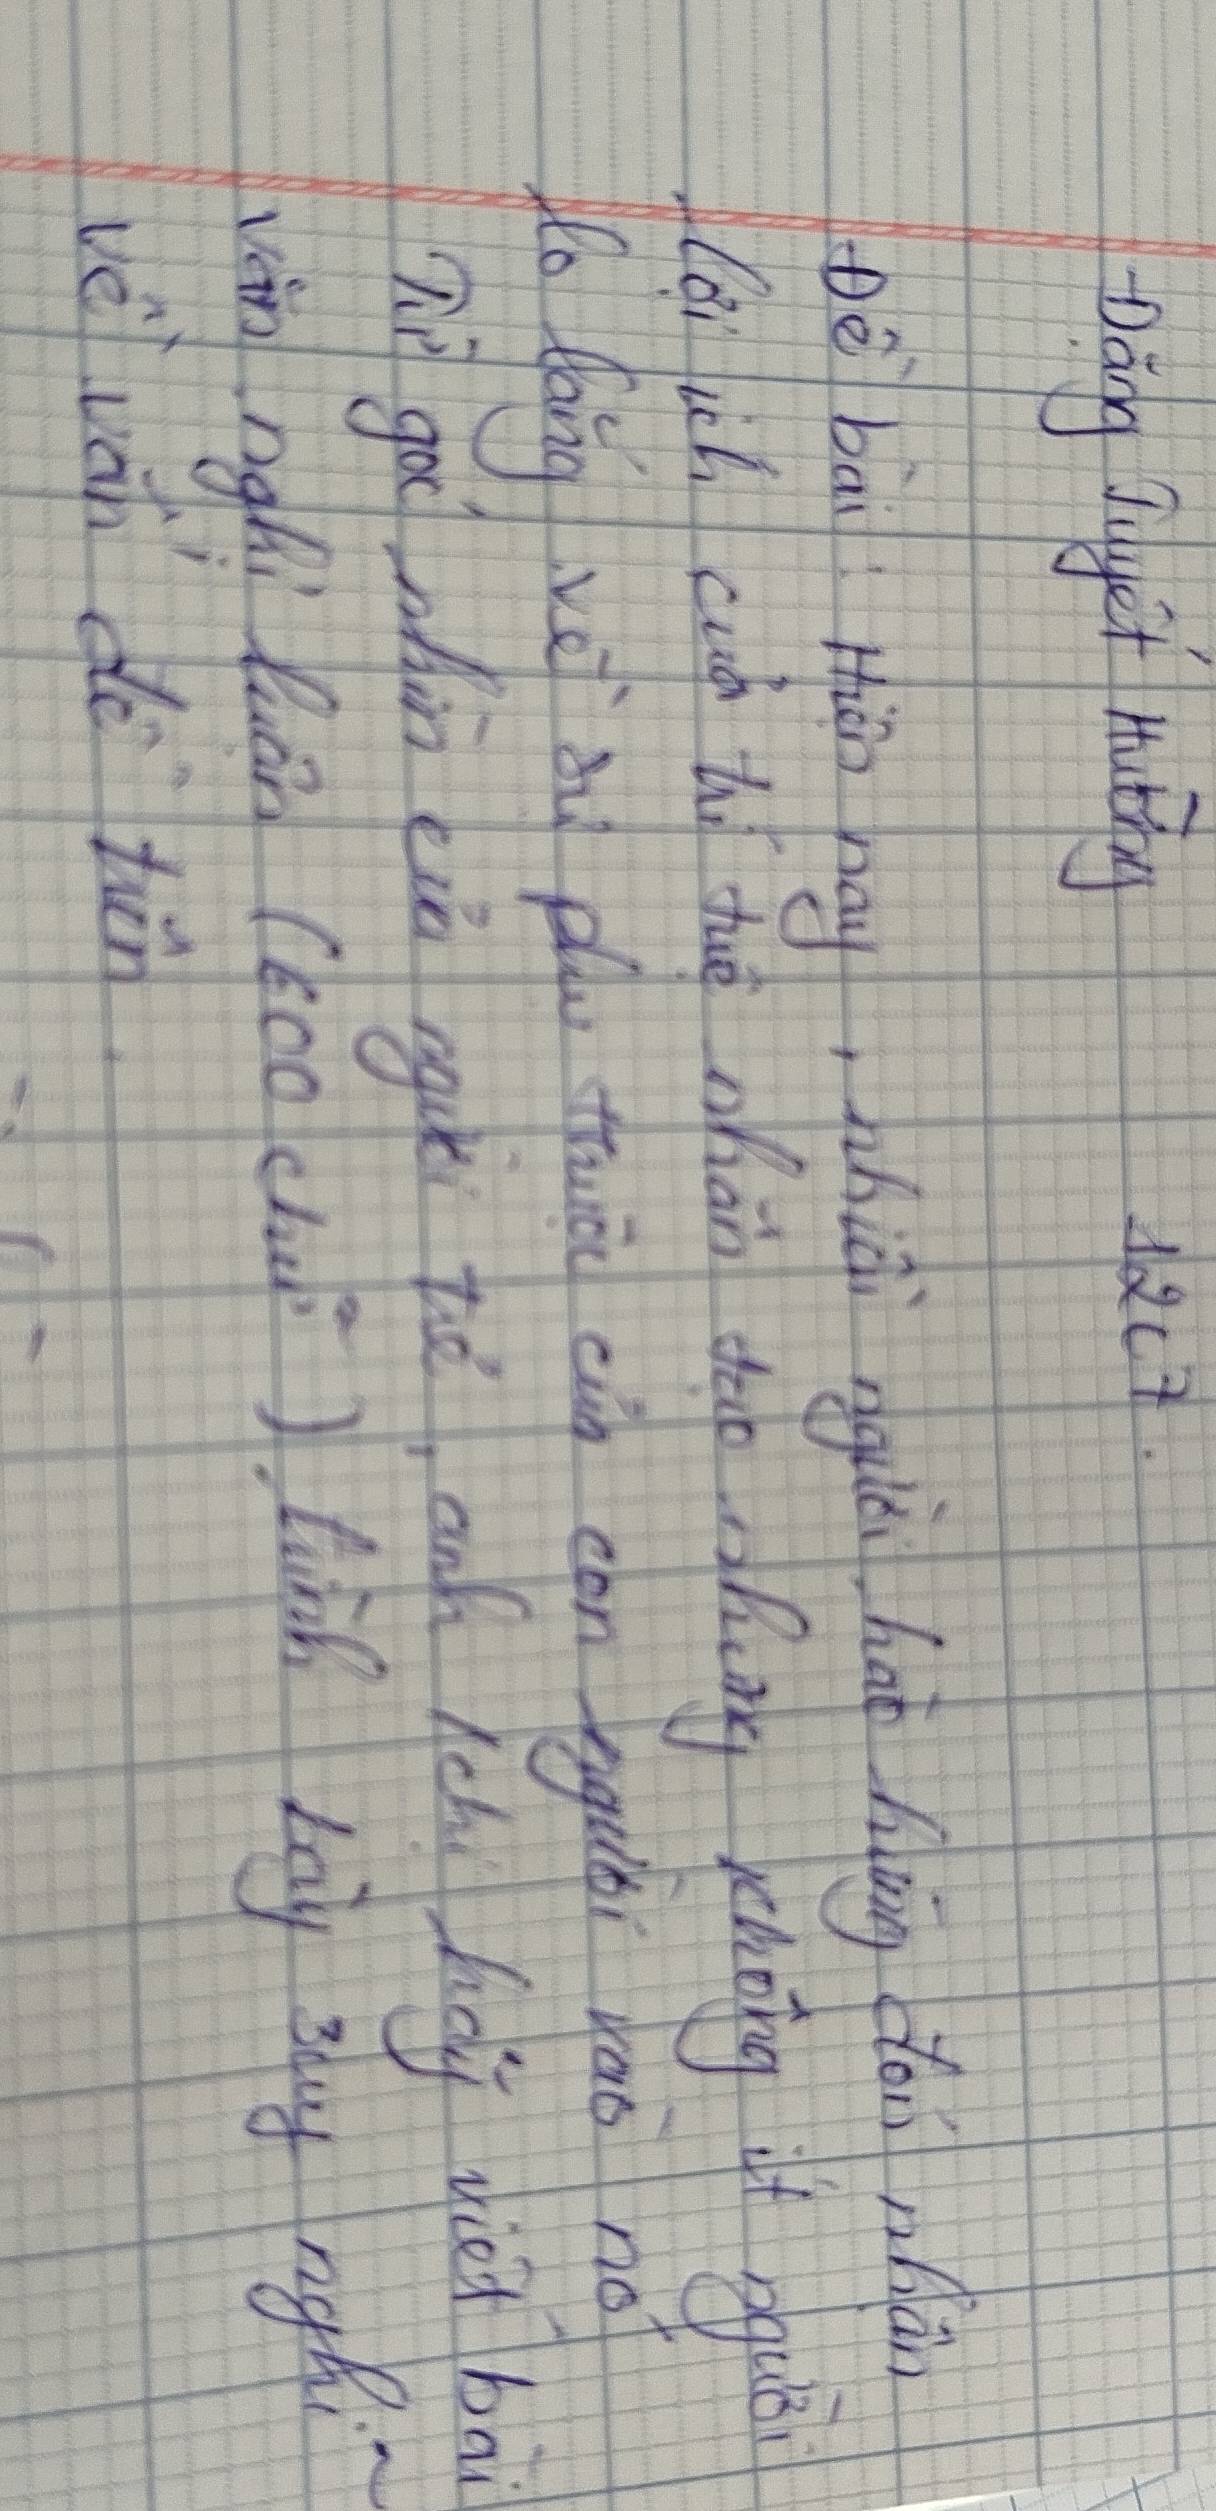 Đặng Tuyết Hường 12C7.
Đề bài : Hiện nay , nhiều người hào hứng đón nhận
lợi ích của trí tuệ nhân tạo nhưng không ít người
lo lắng về sự phụ thuộc của con người vào nó
Từ góc nhìn của người trẻ , anh / chị hãy viết bài
văn nghị luận (600 chữ ) trình bày suy nghĩ
về vấn đề trên .